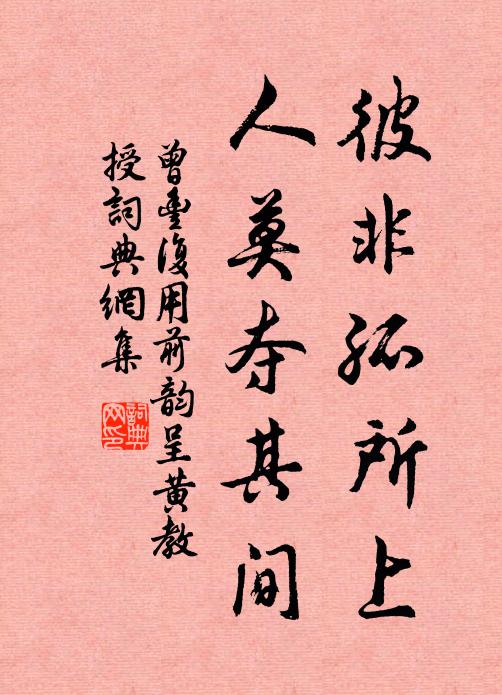 彼非孤所上
人莫夺其间
曾豊復用前韵呈黄教
授詞典網集
詞典网印